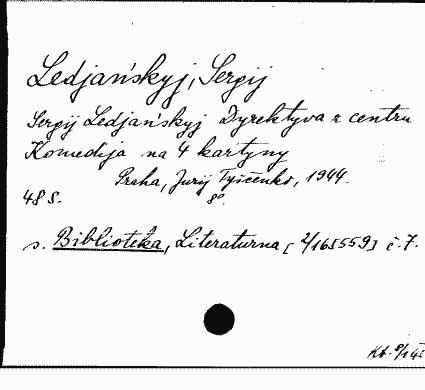 Ledjańskyj, Sergij
Sergij Ledjańskyj Dyrektyva z centru
Komedija na 4 kartyny
Praha, Jurij Tyščenko, 1944.
48 S. 8°.
s. Biblioteka, Literaturna [2/165559] č. 7.